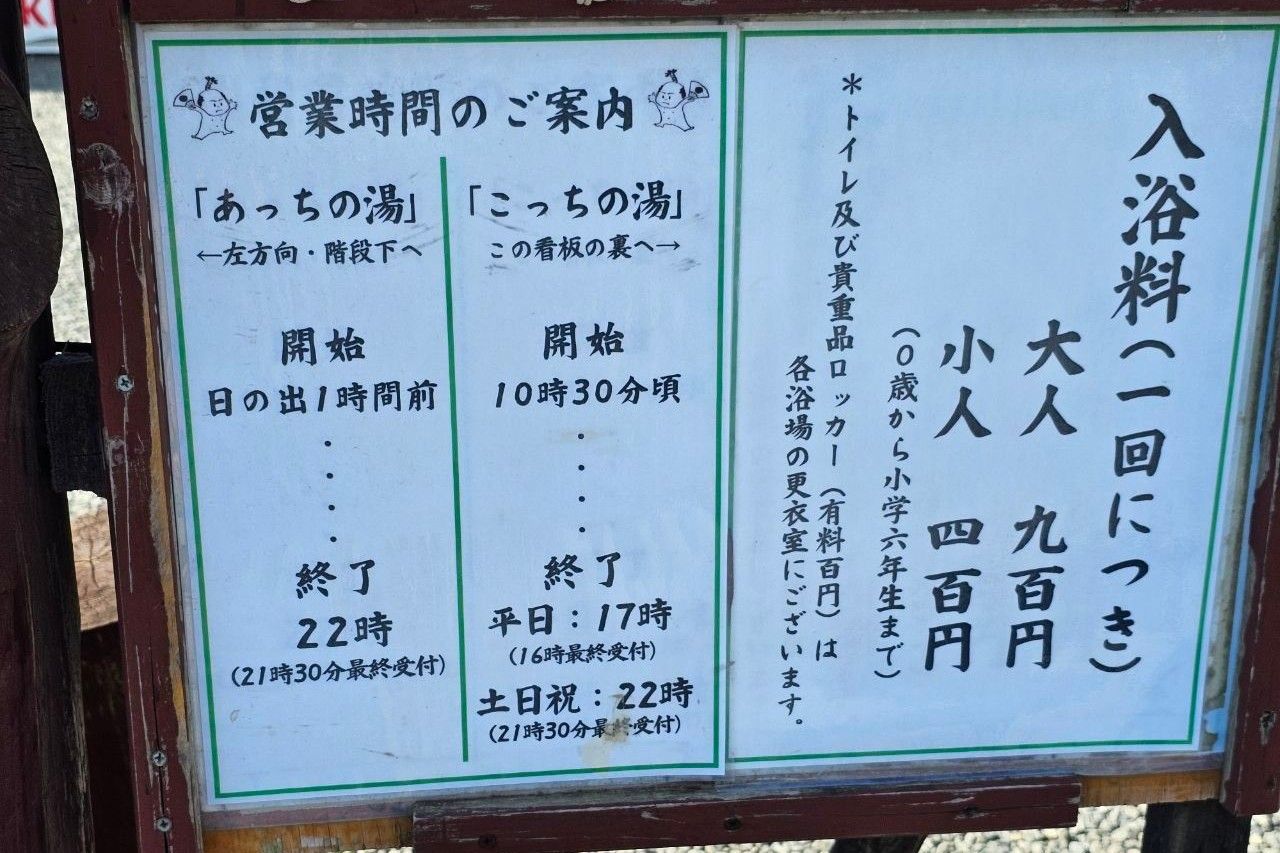 営業時間のご案内
「あっちの湯」
←左方向・階段下へ
開始
日の出1時間前
・
・
・
・
終了
22時
(21時30分最終受付)
「こっちの湯」
この看板の裏へ→
開始
10時30分頃
・
・
・
・
終了
平日：17時
(16時最終受付)
土日祝：22時
(21時30分最終受付)
入浴料(一回につき)
大人 九百円
小人 四百円
(0歳から小学六年生まで)
＊トイレ及び貴重品ロッカー(有料百円)は
各浴場の更衣室にございます。